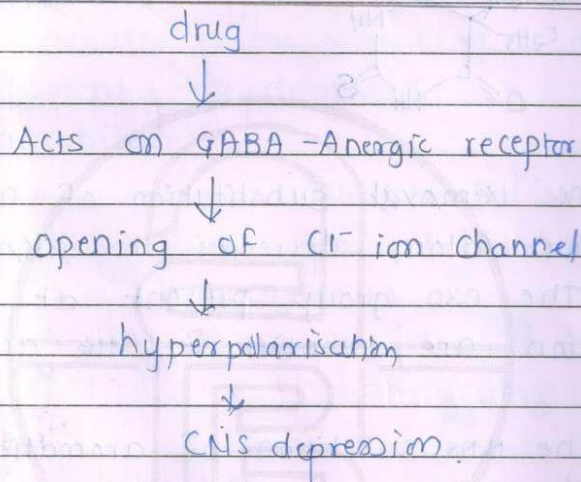 drug
↓
Acts on GABA -Anergic receptor
↓
opening of Cl⁻ ion channel
↓
hyperpolarisation
↓
CNS depression.